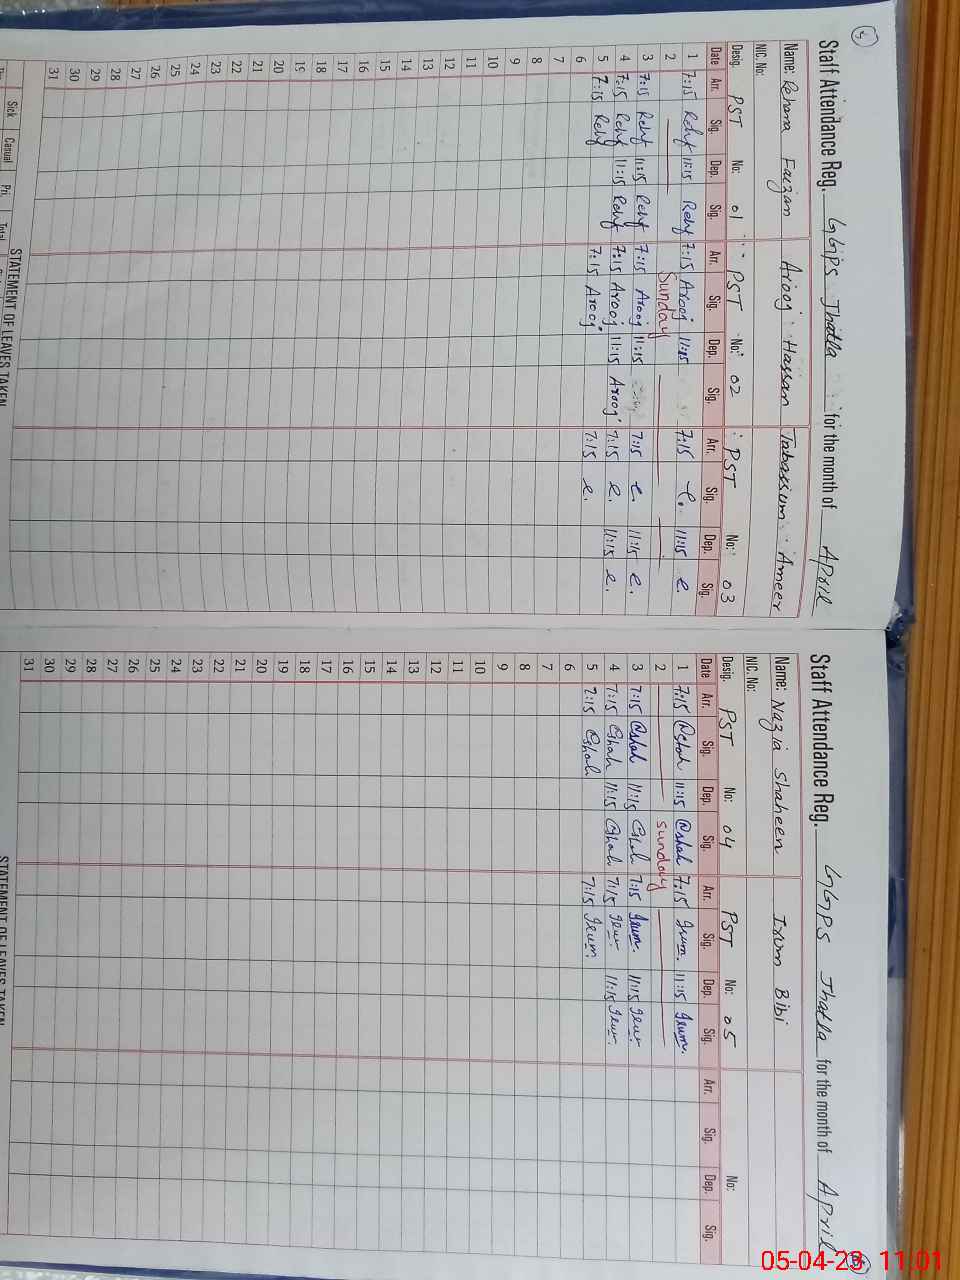 Staff Attendance Reg. GGPS Jhatla for the month of April
Name: Rehana Faizan Arooj Hassan Tabassum Ameer
NIC. No:
Desig. PST No: 01 PST No: 02 PST No: 03
Date Arr. Sig. Dep. Sig. Arr. Sig. Dep. Sig. Arr. Sig. Dep. Sig.
1 7:15 11:15 7:15 Arooj 11:15 7:15 11:15
2 Sunday
3 7:15 11:15 7:15 Arooj 11:15 7:15 11:15
4 7:15 11:15 7:15 Arooj 11:15 Arooj 7:15 11:15
5 7:15 7:15 Arooj 7:15
6
7
8
9
10
11
12
13
14
15
16
17
18
19
20
21
22
23
24
25
26
27
28
29
30
31
STATEMENT OF LEAVES TAKEN
Sick Casual Pri. Total
Staff Attendance Reg. GGPS Jhatla for the month of April
Name: Nazia Shaheen Irum Bibi
NIC. No:
Desig. PST No: 04 PST No: 05 No:
Date Arr. Sig. Dep. Sig. Arr. Sig. Dep. Sig. Arr. Sig. Dep. Sig.
1 7:15 11:15 7:15 Irum. 11:15 Irum.
2 Sunday
3 7:15 11:15 7:15 Irum. 11:15
4 7:15 11:15 7:15 11:15
5 7:15 7:15 Irum.
6
7
8
9
10
11
12
13
14
15
16
17
18
19
20
21
22
23
24
25
26
27
28
29
30
31
STATEMENT OF LEAVES TAKEN
05-04-23 11:01